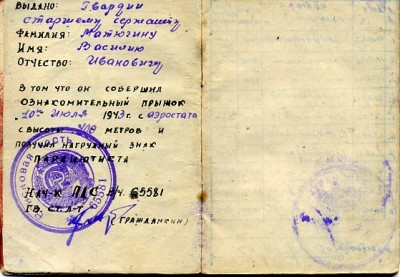 Выдано: Гвардии
старшему сержанту
Фамилия: Матюгину
Имя: Василию
Отчество: Ивановичу
В том что он совершил
ознакомительный прыжок
"10го Июля 1943 г. с аэростата
с высоты 400 метров и
получил нагрудный знак
ПАРАШЮТИСТА
Нач-к ПДС в/ч. 65581
Гв. ст. л-т
(Гражданкин)
войсковая часть
65581